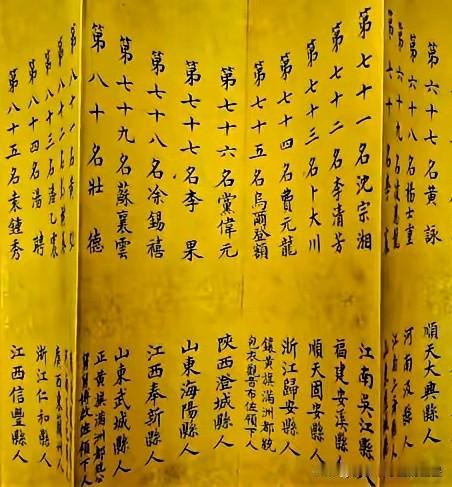 第六十七名黃詠 順天大興縣人
第六十八名楊士重 河南 縣人
第六十九名
第七十名李
第七十一名沈宗湘 江南吳江縣人
第七十二名李清芳 福建安溪縣人
第七十三名卜大川 順天固安縣人
第七十四名費元龍 浙江歸安縣人
第七十五名烏爾登額 鑲黃旗滿洲都統
包衣觀音布佐領下人
第七十六名黨偉元 陝西澄城縣人
第七十七名李果 山東海陽縣人
第七十八名涂錫禧 江西奉新縣人
第七十九名蘇襄雲 山東武城縣人
第八十名壯德 正黃旗滿洲都統
佐領下人
第八十一名
第八十二名
第八十三名
第八十四名湯聘 浙江仁和縣人
第八十五名袁鍾秀 江西信豐縣人